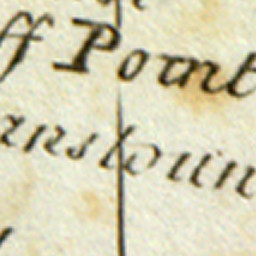 ff Point
anstown